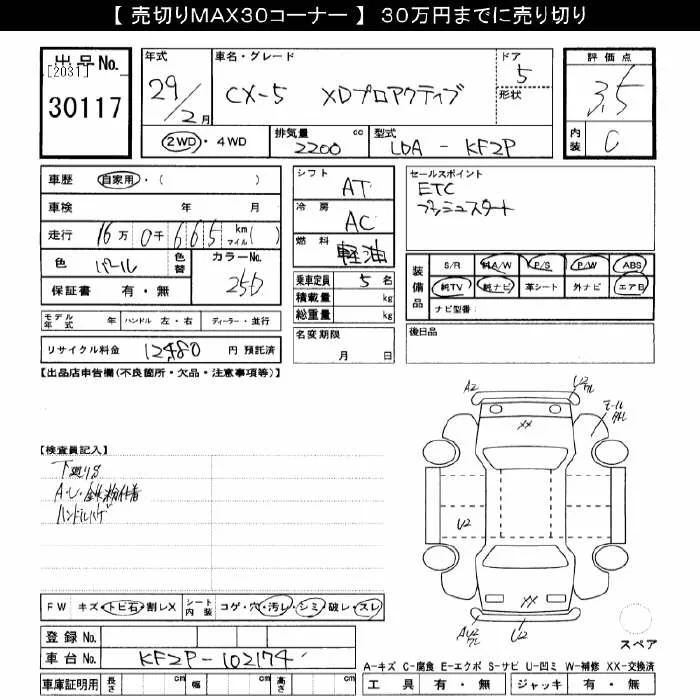 【 売切りMAX30コーナー 】 30万円までに売り切り
出品No. [2031] 30117
年式 29/2月
車名・グレード CX-5 XDプロアクティブ
ドア 5
形状
2WD・4WD
排気量 2200 cc
型式 LDA - KF2P
評価点 3.5
内装 C
車歴 自家用・( )
車検 年 月
走行 16万 0千 665 km マイル( )
色 パール 色替 カラーNo. 25D
保証書 有・無
モデル年式 年 ハンドル 左・右 ディーラー・並行
リサイクル料金 12,480 円 預託済
シフト AT
冷房 AC
燃料 軽油
乗車定員 5 名
積載量 kg
総重量 kg
名変期限 月 日
セールスポイント
ETC
プッシュスタート
装備品 S/R 純A/W P/S P/W ABS
純TV 純ナビ 革シート 外ナビ エアB
ナビ型番:
後日品
【出品店申告欄(不良箇所・欠品・注意事項等)】
【検査員記入】
下廻りS
A・U・鉄粉付着
ハンドルハゲ
A2 U2
モール
XX
U2
XX
U2
FW キズ・トビ石・割レX シート内装 コゲ・穴・汚レ・シミ・破レ・スレ
登録 No.
車台 No. KF2P-102174
車庫証明用 長さ cm 幅 cm 高さ cm
スペア
A-キズ C-腐食 E-エクボ S-サビ U-凹ミ W-補修 XX-交換済
工具 有・無 ジャッキ 有・無